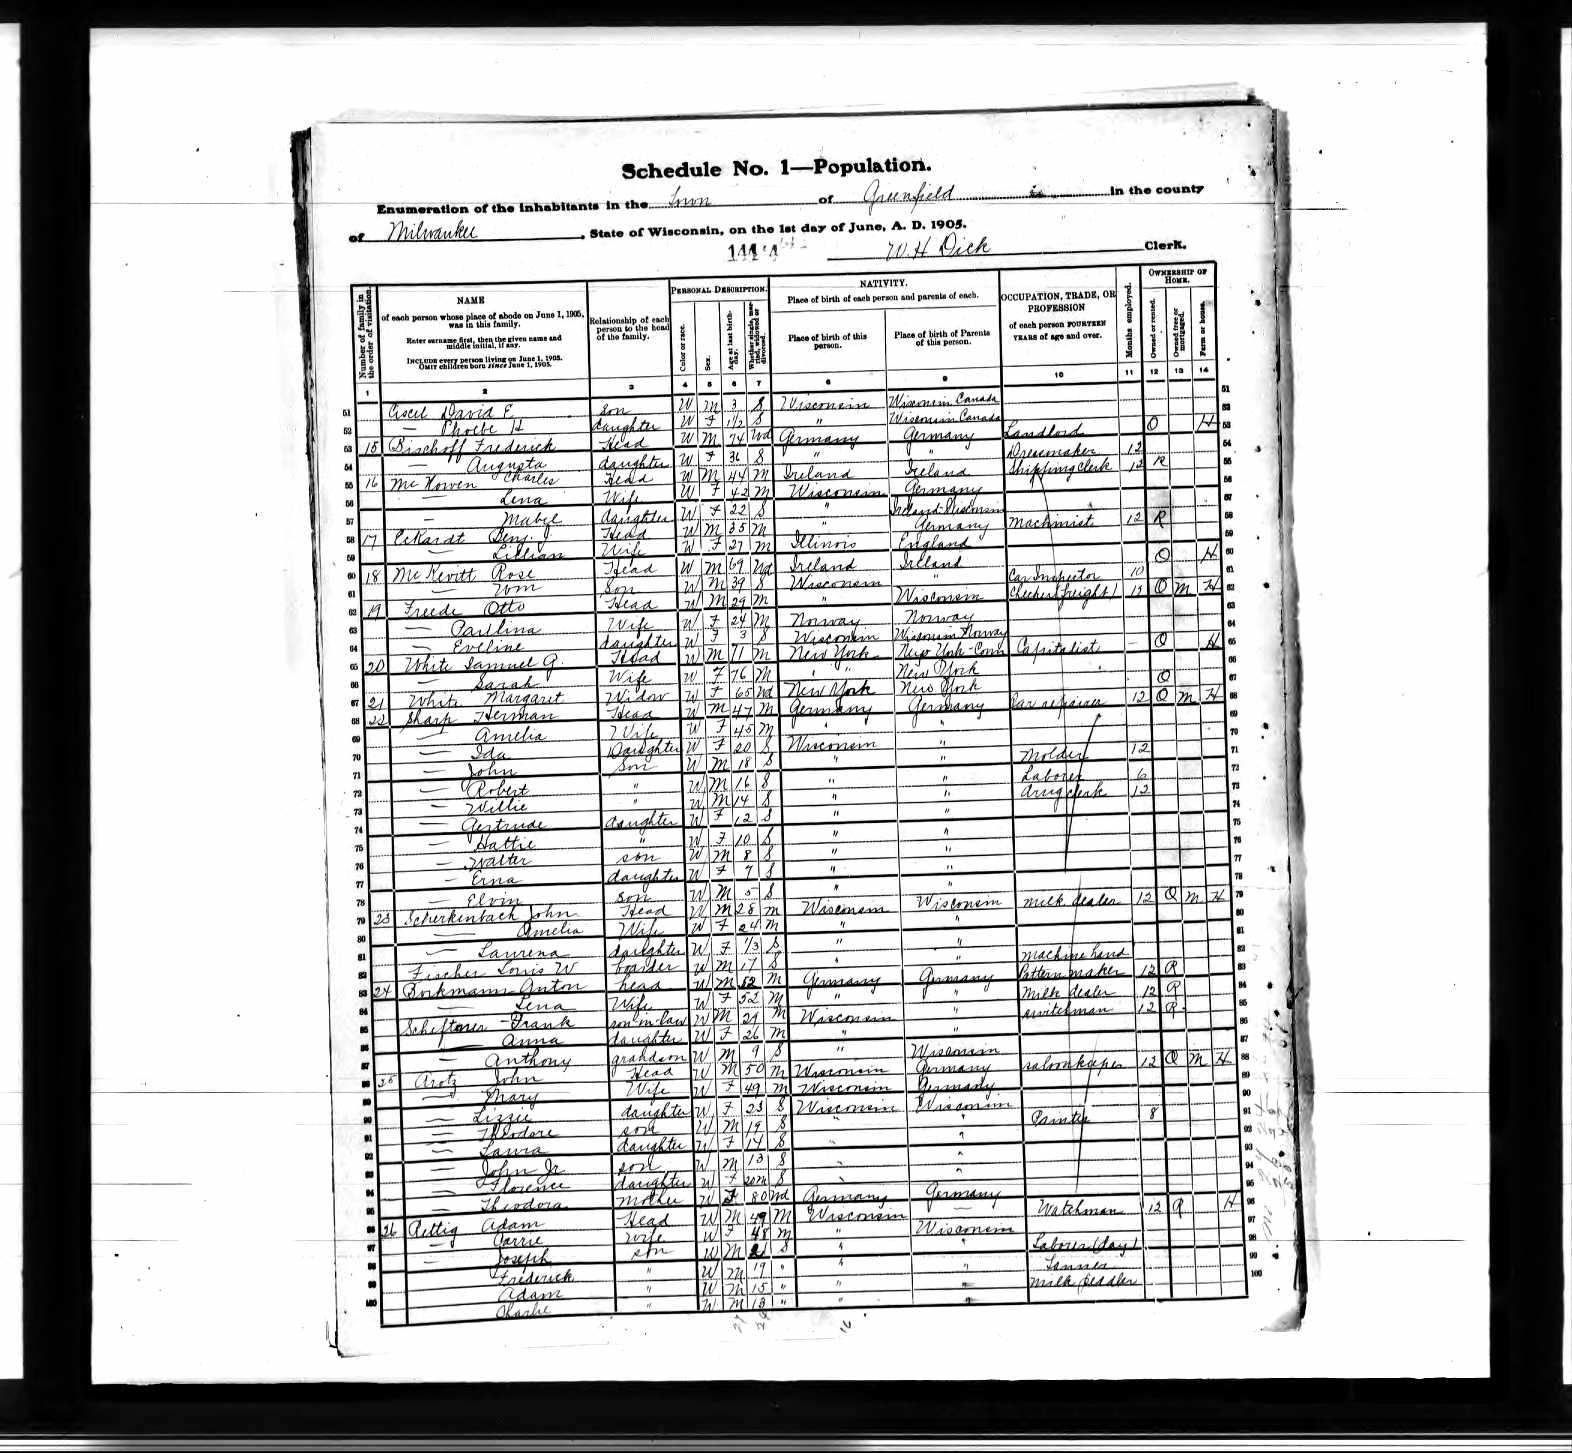 Schedule No. 1—Population.
Enumeration of the inhabitants in the Town of Greenfield in the county
of Milwaukee, State of Wisconsin, on the 1st day of June, A. D. 1905.
144 A
W. H. Dick Clerk.
Number of family in the order of visitation.
NAME
of each person whose place of abode on June 1, 1905, was in this family.
Enter surname first, then the given name and middle initial, if any.
INCLUDE every person living on June 1, 1905.
OMIT children born since June 1, 1905.
Relationship of each person to the head of the family.
PERSONAL DESCRIPTION.
Color or race.
Sex.
Age at last birthday.
Whether single, married, widowed or divorced.
NATIVITY.
Place of birth of each person and parents of each.
Place of birth of this person.
Place of birth of Parents of this person.
OCCUPATION, TRADE, OR PROFESSION
of each person FOURTEEN YEARS of age and over.
Months employed.
OWNERSHIP OF HOME.
Owned or rented.
Owned free or mortgaged.
Farm or house.
1 2 3 4 5 6 7 8 9 10 11 12 13 14
51 David E. son W M 3 S Wisconsin Wisconsin Canada
52 — Phoebe H daughter W F 1/2 S " Wisconsin Canada
53 15 Bischoff Frederick Head W M 74 Wd Germany Germany Landlord O H
54 — Augusta daughter W F 36 S " " Dressmaker 12
55 16 McKowen Charles Head W M 44 M Ireland Ireland Shipping Clerk 12 R
56 — Lena Wife W F 42 M Wisconsin Germany
57 — Mabel daughter W F 22 S " Ireland Wisconsin
58 17 Eckardt Benj. J. Head W M 35 M " Germany Machinist 12 R
59 — Lillian Wife W F 27 M Illinois England
60 18 McKevitt Rose Head W M 69 Wd Ireland Ireland O H
61 — Wm Son W M 39 S Wisconsin " Car Inspector 10
62 19 Freede Otto Head W M 29 M " Wisconsin Checker (freight) 12 O M H
63 — Paulina Wife W F 24 M Norway Norway
64 — Eveline daughter W F 3 S Wisconsin Wisconsin Norway
65 20 White Samuel G. Head W M 71 M New York New York - Conn Capitalist — O H
66 — Sarah Wife W F 76 M " " New York
67 21 White Margaret Widow W F 65 Wd New York New York O
68 22 Sharp Herman Head W M 47 M Germany Germany Car repairer 12 O M H
69 — Amelia Wife W F 45 M " "
70 — Ida Daughter W F 20 S Wisconsin "
71 — John Son W M 18 S " " Molder 12
72 — Robert " W M 16 S " " Laborer 6
73 — Willie " W M 14 S " " drug clerk 12
74 — Gertrude daughter W F 12 S " "
75 — Hattie " W F 10 S " "
76 — Walter son W M 8 S " "
77 — Erna daughter W F 7 S " "
78 — Elvin son W M 5 S " "
79 23 Scherkenbach John Head W M 28 M Wisconsin Wisconsin milk dealer 12 O M H
80 — Amelia Wife W F 24 M " "
81 — Laurena daughter W F 1/3 S " "
82 Fischer Louis W boarder W M 17 S " " machine hand
83 24 Borkmann Anton head W M 52 M Germany Germany Pattern maker 12 R
84 — Lena Wife W F 52 M " " Milk dealer 12 R
85 Frank son-in-law W M 29 M Wisconsin " switchman 12 R
86 — Anna daughter W F 26 M " "
87 — Anthony grandson W M 9 S " Wisconsin
88 25 Arotz John Head W M 50 M Wisconsin Germany saloonkeeper 12 O M H
89 — Mary Wife W F 49 M Wisconsin Germany
90 — Lizzie daughter W F 23 S Wisconsin Wisconsin
91 — Theodore son W M 19 S " " Painter 8
92 — Laura daughter W F 14 S " "
93 — John Jr son W M 13 S " "
94 — Florence daughter W F S " "
95 — Theodora mother W F 80 Wd Germany Germany
96 26 Rettig Adam Head W M 49 M Wisconsin — Watchman 12 R H
97 — Carrie wife W F 48 M " Wisconsin
98 — Joseph son W M 21 S " " Laborer (day)
99 Frederick " W M 19 " " " Tanner
Adam " W M 15 " " " milk peddler
100 Charlie " W M 13 " " "